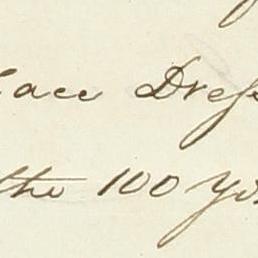 lace Dres
the 100 yd